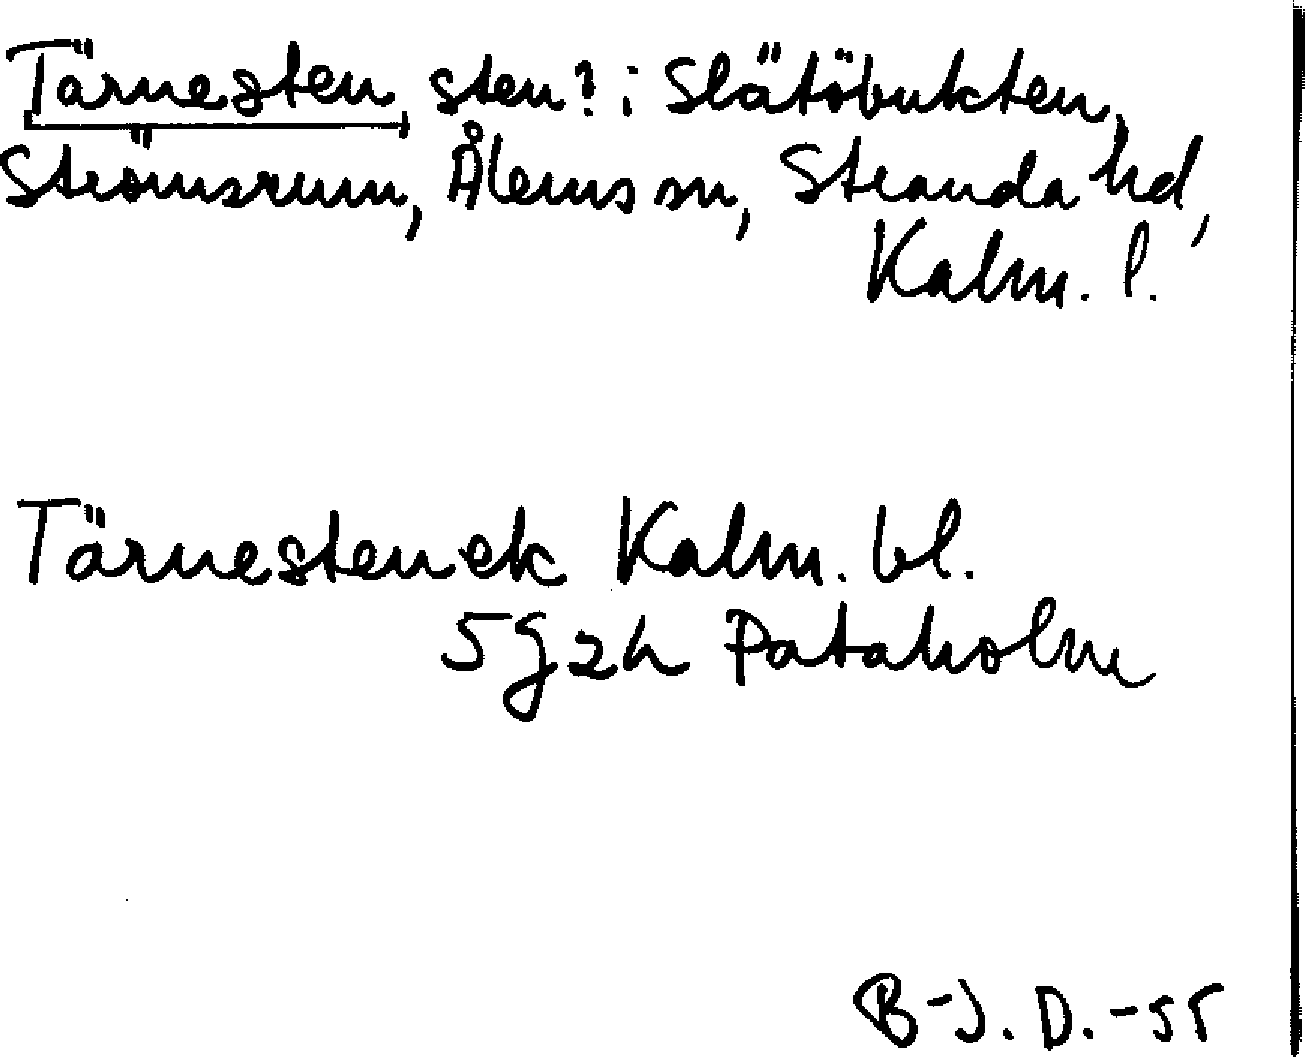 Tärnesten, sten? i Slätöbukten,
Strömsrum, Ålems sn, Stranda hd,
Kalm. l.
Tärnesten ek Kalm. bl.
5g2h Pataholm
B-J. D. -55